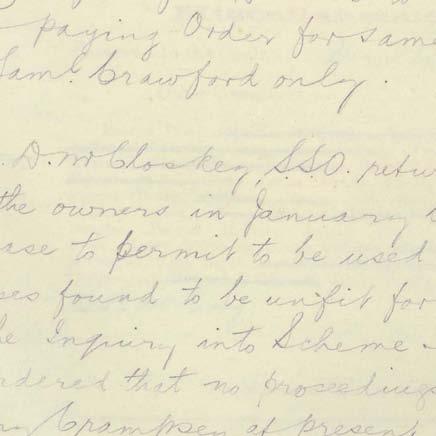 paying Order for same
Saml. Crawford only.
D. McCloskey, S.S.O. retu
the owners in January
ase to permit to be used
ses found to be unfit for
he Inquiry into Scheme -
rdered that no proceedings
Crampsey at present